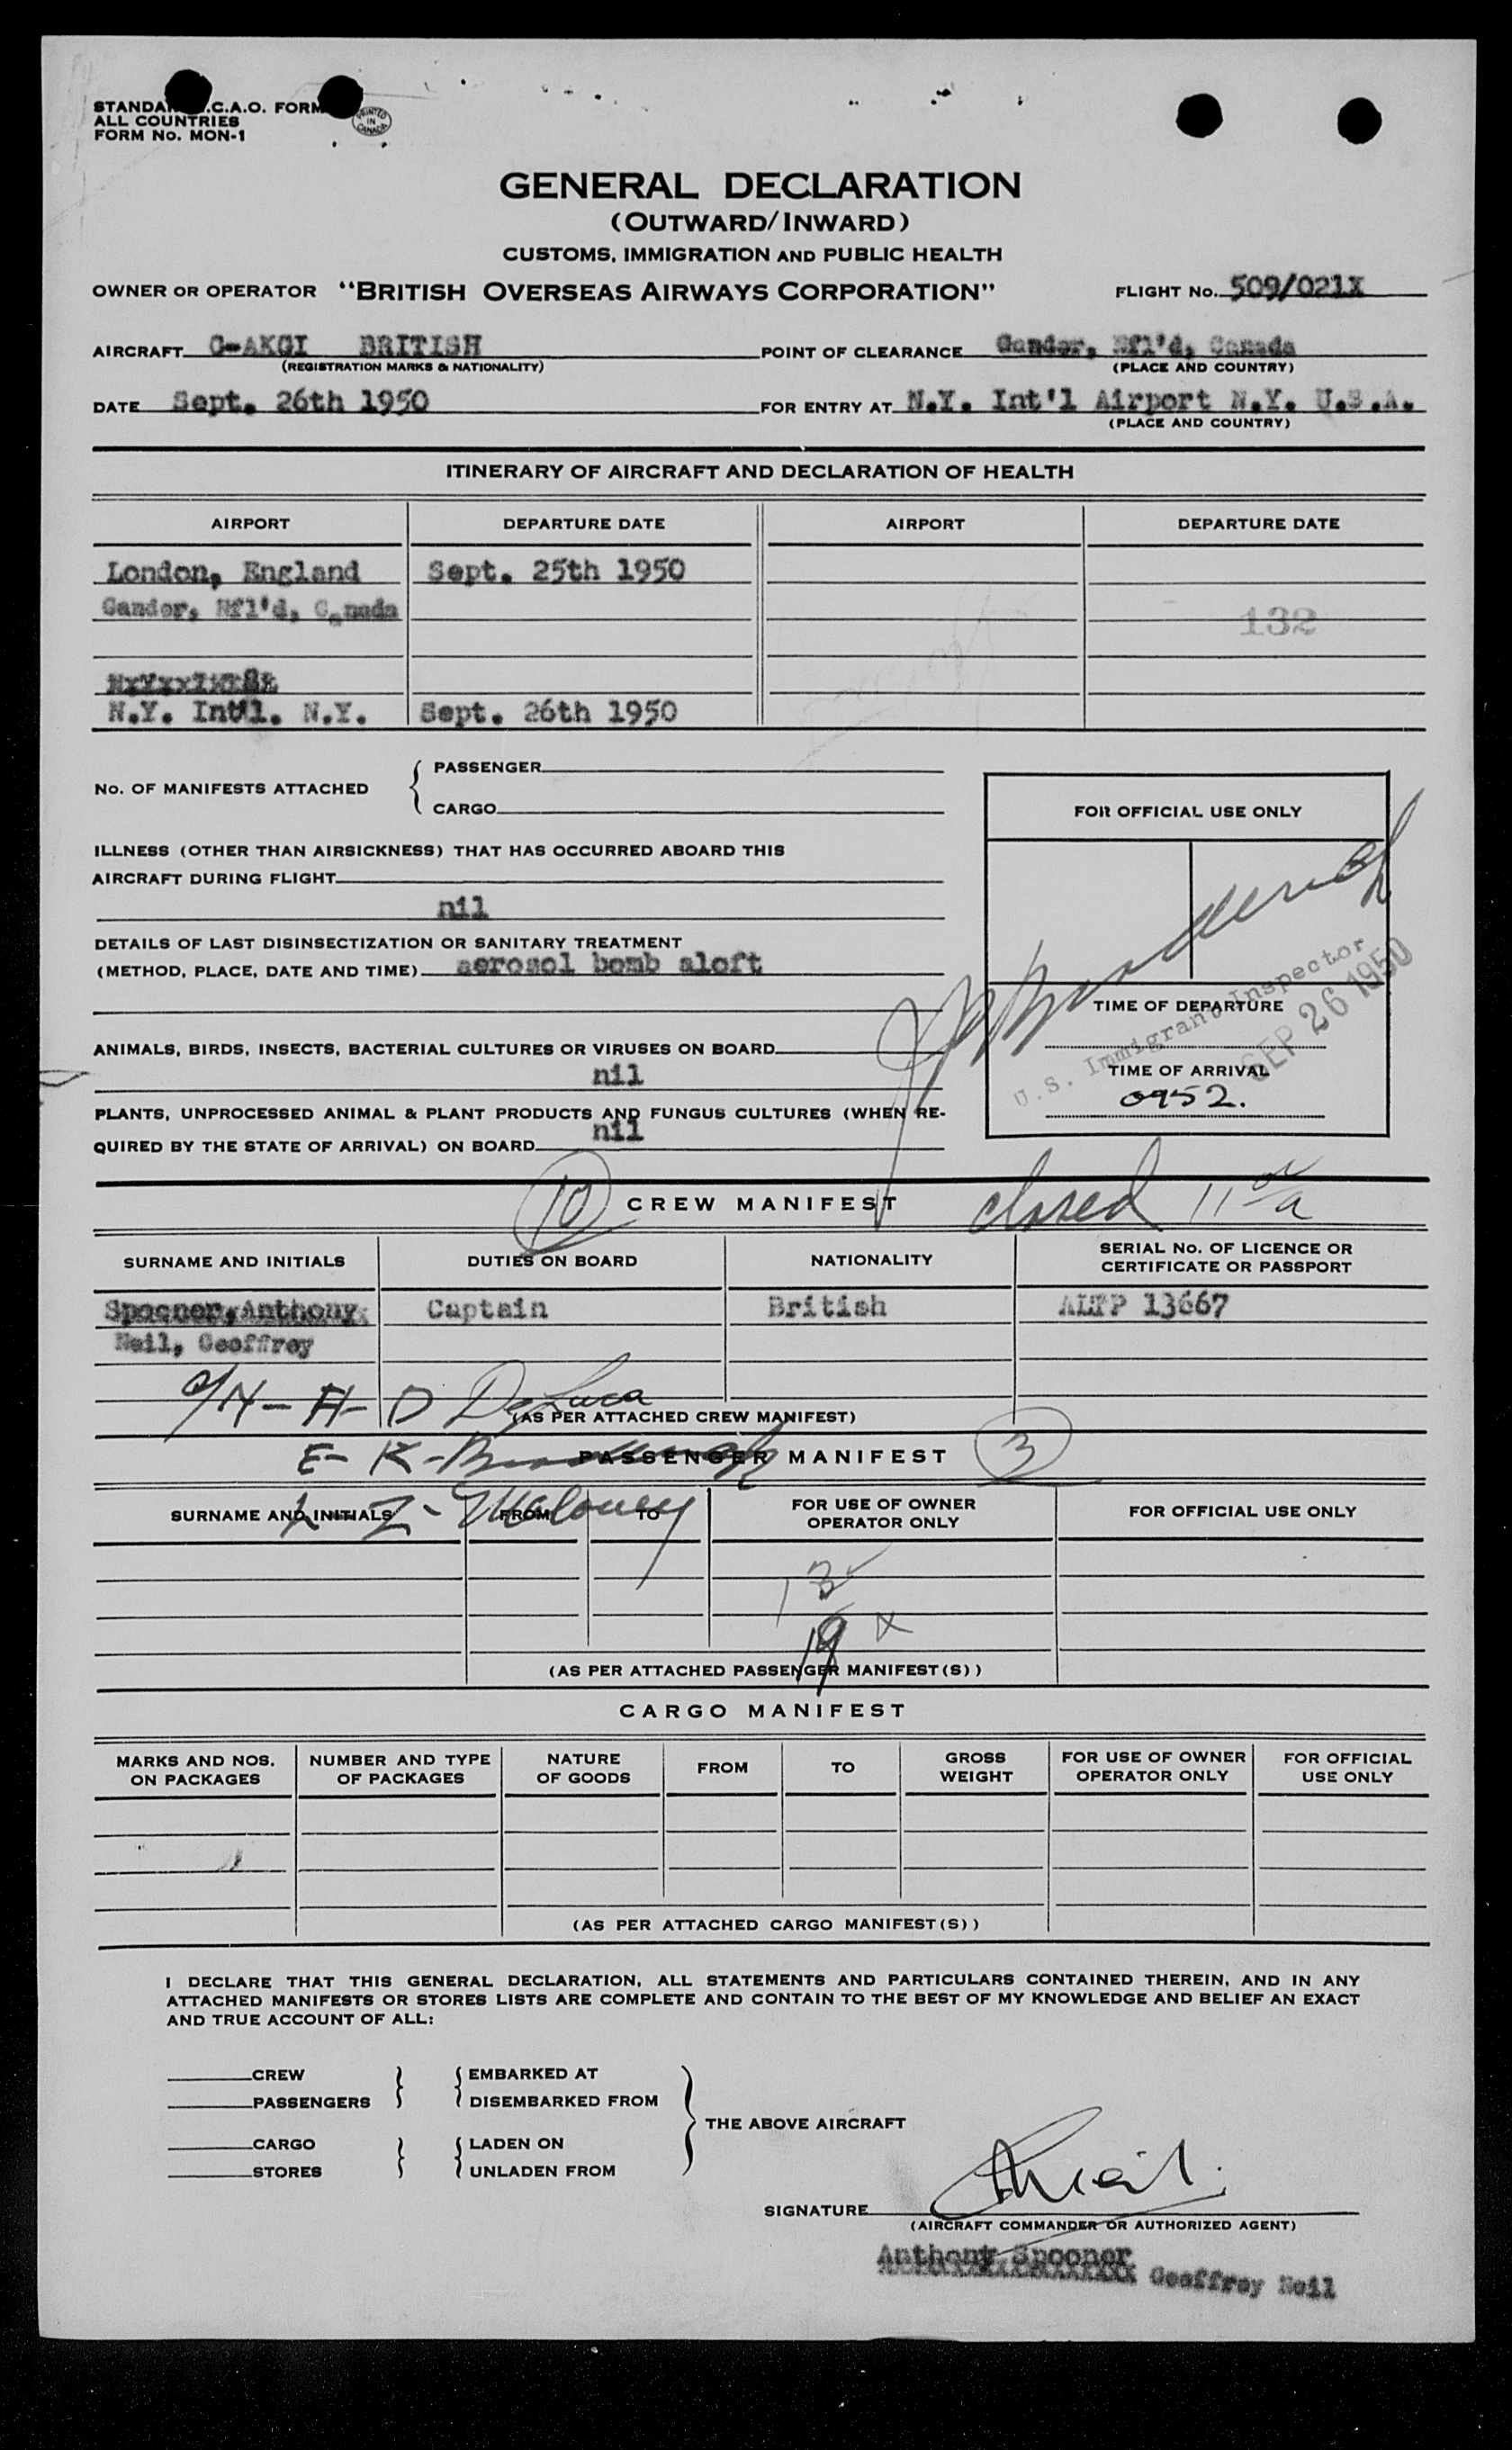 STANDA .C.A.O. FORM
ALL COUNTRIES
FORM No. MON-1
PRINTED IN CANADA
GENERAL DECLARATION
(OUTWARD/INWARD)
CUSTOMS, IMMIGRATION AND PUBLIC HEALTH
OWNER OR OPERATOR "BRITISH OVERSEAS AIRWAYS CORPORATION" FLIGHT No. 509/021X
AIRCRAFT G-AKGI BRITISH POINT OF CLEARANCE Gander, Nfl'd, Canada
(REGISTRATION MARKS & NATIONALITY) (PLACE AND COUNTRY)
DATE Sept. 26th 1950 FOR ENTRY AT N.Y. Int'l Airport N.Y. U.S.A.
(PLACE AND COUNTRY)
ITINERARY OF AIRCRAFT AND DECLARATION OF HEALTH
AIRPORT DEPARTURE DATE AIRPORT DEPARTURE DATE
London, England Sept. 25th 1950
Gander, Nfl'd, Canada
132
N.Y. Int'l. N.Y. Sept. 26th 1950
No. OF MANIFESTS ATTACHED { PASSENGER
CARGO
FOR OFFICIAL USE ONLY
ILLNESS (OTHER THAN AIRSICKNESS) THAT HAS OCCURRED ABOARD THIS
AIRCRAFT DURING FLIGHT
nil
DETAILS OF LAST DISINSECTIZATION OR SANITARY TREATMENT
(METHOD, PLACE, DATE AND TIME) aerosol bomb aloft
U.S. Immigrant Inspector
SEP 26 1950
TIME OF DEPARTURE
ANIMALS, BIRDS, INSECTS, BACTERIAL CULTURES OR VIRUSES ON BOARD
nil
TIME OF ARRIVAL
0952.
PLANTS, UNPROCESSED ANIMAL & PLANT PRODUCTS AND FUNGUS CULTURES (WHEN RE-
nil
QUIRED BY THE STATE OF ARRIVAL) ON BOARD
10 CREW MANIFEST closed 11 00 a
SURNAME AND INITIALS DUTIES ON BOARD NATIONALITY SERIAL No. OF LICENCE OR
CERTIFICATE OR PASSPORT
Spooner, Anthony Captain British ALTP 13667
Neil, Geoffrey
H- D DeLuca
(AS PER ATTACHED CREW MANIFEST)
E- K-
PASSENGER MANIFEST 3
Z- Maloney
SURNAME AND INITIALS FROM TO FOR USE OF OWNER
OPERATOR ONLY FOR OFFICIAL USE ONLY
13
19 x
(AS PER ATTACHED PASSENGER MANIFEST(S))
CARGO MANIFEST
MARKS AND NOS.
ON PACKAGES NUMBER AND TYPE
OF PACKAGES NATURE
OF GOODS FROM TO GROSS
WEIGHT FOR USE OF OWNER
OPERATOR ONLY FOR OFFICIAL
USE ONLY
(AS PER ATTACHED CARGO MANIFEST(S))
I DECLARE THAT THIS GENERAL DECLARATION, ALL STATEMENTS AND PARTICULARS CONTAINED THEREIN, AND IN ANY
ATTACHED MANIFESTS OR STORES LISTS ARE COMPLETE AND CONTAIN TO THE BEST OF MY KNOWLEDGE AND BELIEF AN EXACT
AND TRUE ACCOUNT OF ALL:
CREW EMBARKED AT
PASSENGERS DISEMBARKED FROM
THE ABOVE AIRCRAFT
CARGO LADEN ON
STORES UNLADEN FROM
SIGNATURE Neil.
(AIRCRAFT COMMANDER OR AUTHORIZED AGENT)
Anthony Spooner Geoffrey Neil